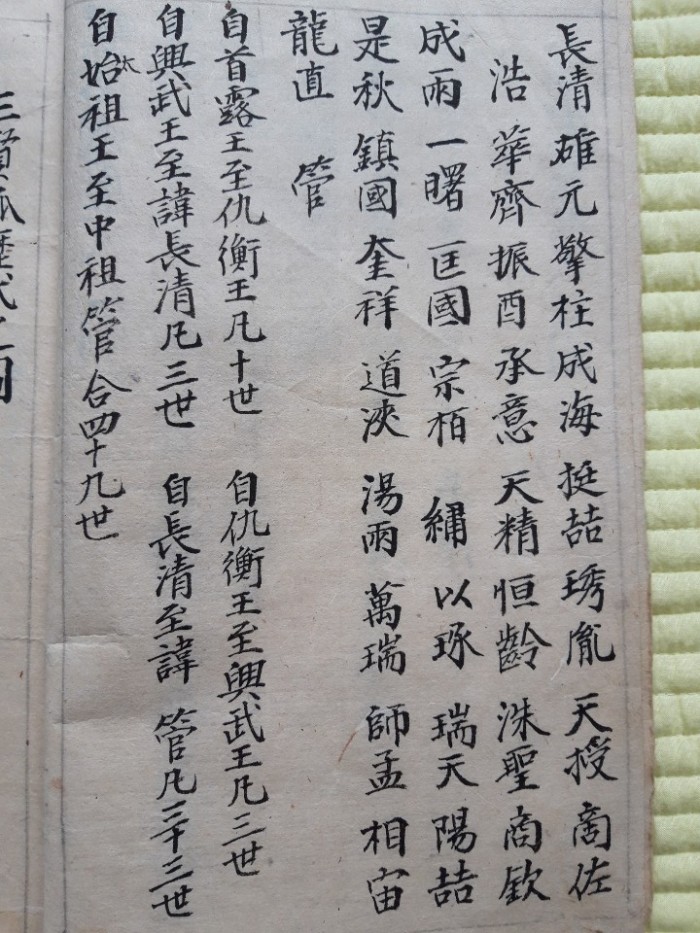 長清 雄元 擎柱 成海 挺喆 琇胤 天授 商佐
浩 華齊 振酉 承意 天精 恒齡 洙聖 商欽
成雨 一曙 匡國 宗栢 繡 以琢 瑞天 陽喆
是秋 鎮國 奎祥 道浹 湯雨 萬瑞 師孟 相宙
龍直 管
自首露王至仇衡王凡十世 自仇衡王至興武王凡三世
自興武王至諱長清凡三世 自長清至諱 管凡三十三世
自太始祖王至中祖管合四十九世